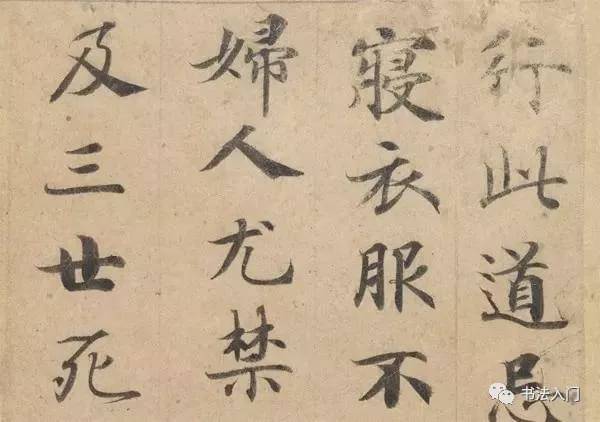 行此道忌
寢衣服不
婦人尤禁
及三世死
书法入门